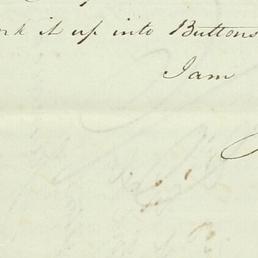 ork it up into Buttons
I am